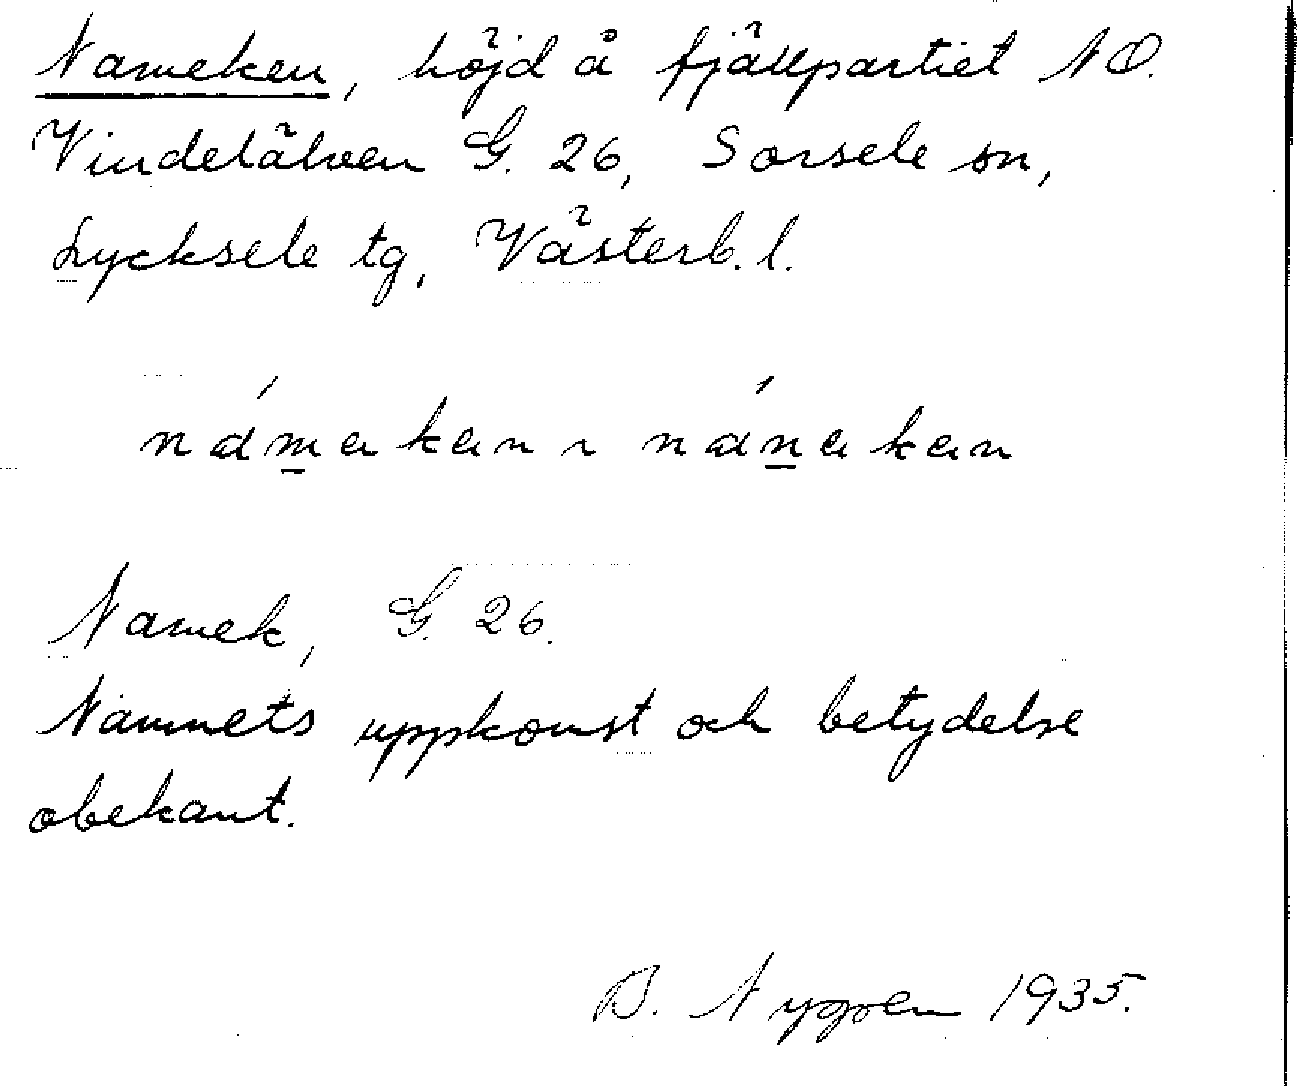 Nameken, höjd å fjällpartiet NO.
Vindelälven G. 26, Sorsele sn,
Lycksele tg, Västerb. l.
námakan ~ nánakan
Namek, G. 26.
Namnets uppkomst och betydelse
obekant.
B. Nygren 1935.